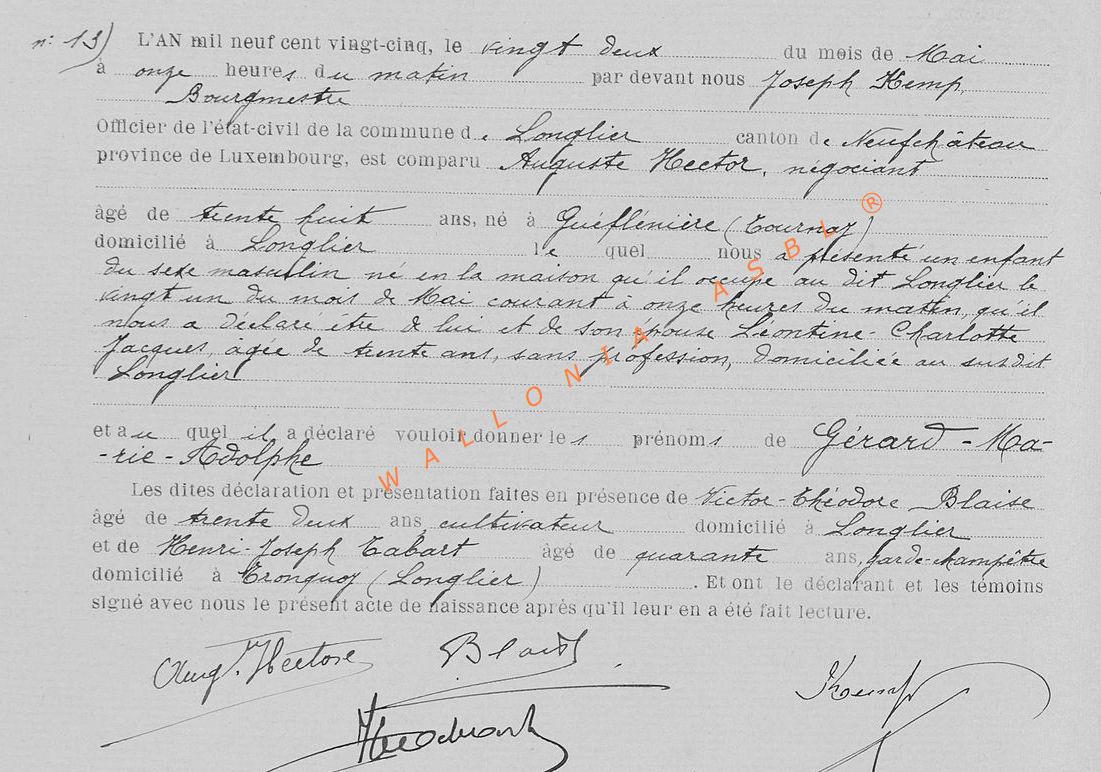 n: 13)
L'AN mil neuf cent vingt-cinq, le vingt deux du mois de Mai
à onze heures du matin par devant nous Joseph Kemp,
Bourgmestre
Officier de l'état-civil de la commune de Longlier canton de Neufchâteau
province de Luxembourg, est comparu Auguste Hector, négociant
âgé de trente huit ans, né à (Tournay)
domicilié à Longlier le quel nous a présenté un enfant
du sexe masculin né en la maison qu'il occupe au dit Longlier le
vingt un du mois de Mai courant à onze heures du matin, qu'il
nous a déclaré être de lui et de son épouse Léontine-Charlotte
Jacques, âgée de trente ans, sans profession, domiciliée au susdit
Longlier
et au quel il a déclaré vouloir donner les prénoms de Gérard-Ma-
-rie-Adolphe
Les dites déclaration et présentation faites en présence de Victor-Théodore Blaise
âgé de trente deux ans, cultivateur domicilié à Longlier
et de Henri-Joseph Tabart âgé de quarante ans, garde-champêtre
domicilié à Tronquoy (Longlier). Et ont le déclarant et les témoins
signé avec nous le présent acte de naissance après qu'il leur en a été fait lecture.
WALLONIA ASBL ®
Kemp